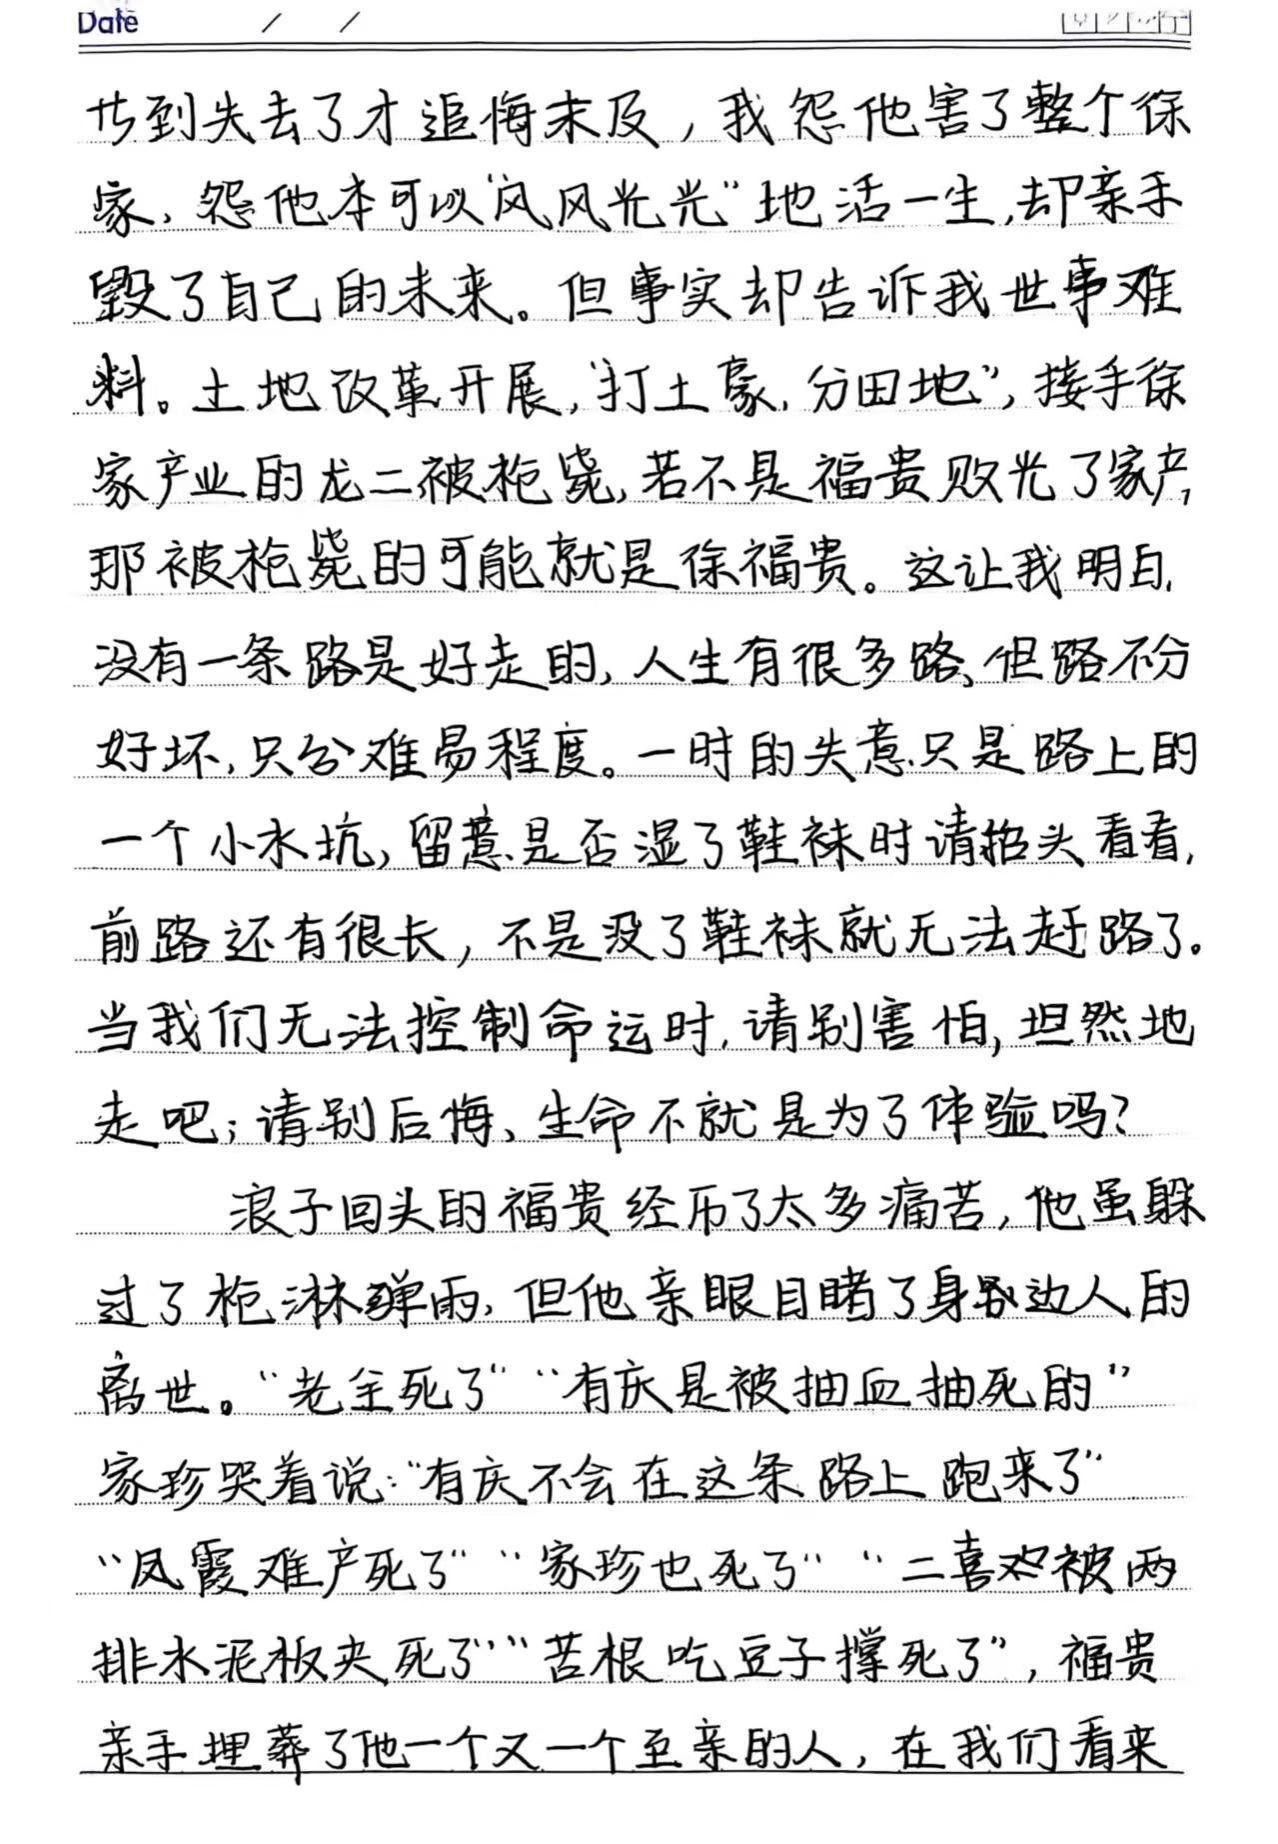 Date / /
才到失去了才追悔未及，我怨他害了整个徐
家，怨他本可以“风风光光”地活一生，却亲手
毁了自己的未来。但事实却告诉我世事难
料。土地改革开展，“打土豪，分田地”，接手徐
家产业的龙二被枪毙，若不是福贵败光了家产，
那被枪毙的可能就是徐福贵。这让我明白，
没有一条路是好走的，人生有很多路，但路不分
好坏，只分难易程度。一时的失意只是路上的
一个小水坑，留意是否湿了鞋袜时请抬头看看，
前路还有很长，不是没了鞋袜就无法赶路了。
当我们无法控制命运时，请别害怕，坦然地
走吧；请别后悔、生命不就是为了体验吗？
浪子回头的福贵经历了太多痛苦，他虽躲
过了枪淋弹雨，但他亲眼目睹了身边人的
离世。“老全死了”“有庆是被抽血抽死的”
家珍哭着说：“有庆不会在这条路上跑来了”
“凤霞难产死了”“家珍也死了”“二喜被两
排水泥板夹死了”“苦根吃豆子撑死了”，福贵
亲手埋葬了他一个又一个至亲的人，在我们看来